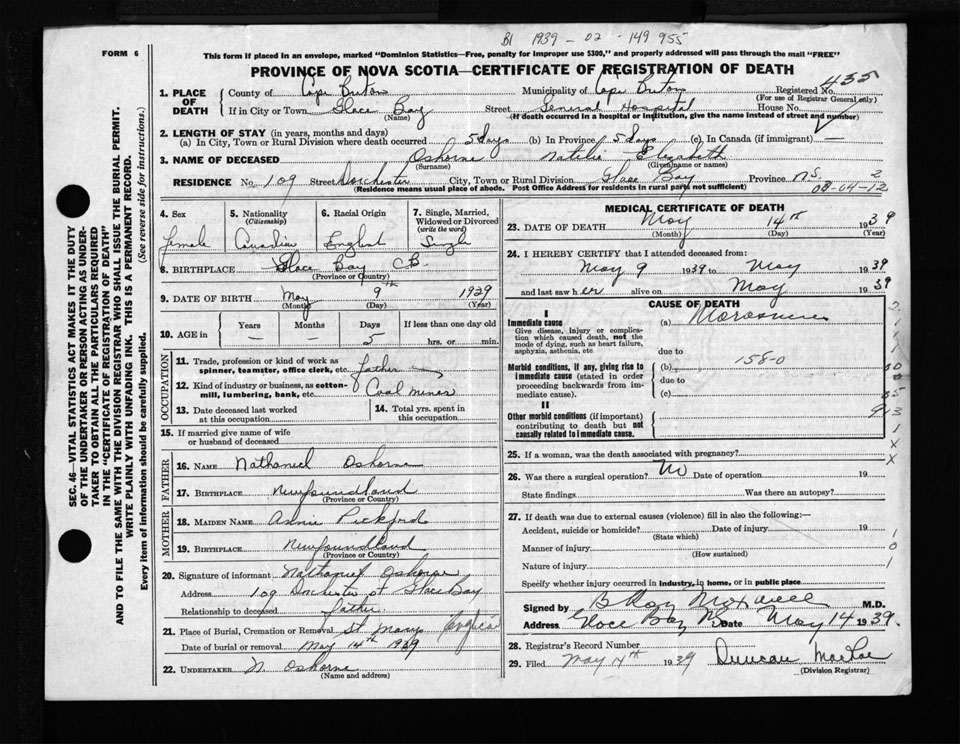 B1 1939 - 02 - 149955
FORM 6
This form if placed in an envelope, marked "Dominion Statistics—Free, penalty for improper use $300," and properly addressed will pass through the mail "FREE"
PROVINCE OF NOVA SCOTIA—CERTIFICATE OF REGISTRATION OF DEATH
SEC. 46—VITAL STATISTICS ACT MAKES IT THE DUTY
OF THE UNDERTAKER OR PERSON ACTING AS UNDER-
TAKER TO OBTAIN ALL THE PARTICULARS REQUIRED
IN THE "CERTIFICATE OF REGISTRATION OF DEATH"
AND TO FILE THE SAME WITH THE DIVISION REGISTRAR WHO SHALL ISSUE THE BURIAL PERMIT.
WRITE PLAINLY WITH UNFADING INK. THIS IS A PERMANENT RECORD.
Every item of information should be carefully supplied. (See reverse side for instructions.)
1. PLACE OF DEATH County of Cape Breton Municipality of Cape Breton Registered No. 435
(For use of Registrar General only)
If in City or Town Glace Bay Street General Hospital House No.
(Name) (If death occurred in a hospital or institution, give the name instead of street and number)
2. LENGTH OF STAY (in years, months and days)
(a) In City, Town or Rural Division where death occurred 5 days (b) In Province 5 days (c) In Canada (if immigrant) —
3. NAME OF DECEASED Osborne Natelie Elizabeth
(Surname) (Given names or names)
RESIDENCE No. 109 Street Dorchester City, Town or Rural Division Glace Bay Province N.S. 2
(Residence means usual place of abode. Post Office Address for residents in rural parts not sufficient) 08-04-12
4. Sex
female
5. Nationality
(Citizenship)
Canadian
6. Racial Origin
English
7. Single, Married,
Widowed or Divorced
(write the word)
Single
8. BIRTHPLACE Glace Bay C.B.
(Province or Country)
9. DATE OF BIRTH May 9th 1939
(Month) (Day) (Year)
10. AGE in Years — Months — Days 5 If less than one day old
hrs. or min.
OCCUPATION
11. Trade, profession or kind of work as
spinner, teamster, office clerk, etc. father
12. Kind of industry or business, as cotton-
mill, lumbering, bank, etc. Coal miner
13. Date deceased last worked
at this occupation
14. Total yrs. spent in
this occupation
15. If married give name of wife
or husband of deceased
FATHER
16. NAME Nathaniel Osborne
17. BIRTHPLACE Newfoundland
(Province or Country)
MOTHER
18. MAIDEN NAME Annie Pickford
19. BIRTHPLACE Newfoundland
(Province or Country)
20. Signature of informant Nathaniel Osborne
Address 109 Dorchester st Glace Bay
Relationship to deceased father
21. Place of Burial, Cremation or Removal St. Marys
Date of burial or removal May 14th 1939
22. UNDERTAKER N. Osborne
(Name and address)
MEDICAL CERTIFICATE OF DEATH
23. DATE OF DEATH May 14th 1939
(Month) (Day) (Year)
24. I HEREBY CERTIFY that I attended deceased from:
May 9 1939 to May 1939
and last saw her alive on May 1939
CAUSE OF DEATH
I
Immediate cause
Give disease, injury or complica-
tion which caused death, not the
mode of dying, such as heart failure,
asphyxia, asthenia, etc
(a) Marasmus
due to
Morbid conditions, if any, giving rise to
immediate cause (stated in order
proceeding backwards from im-
mediate cause).
(b) 158-0
due to
(c)
II
Other morbid conditions (if important)
contributing to death but not
causally related to immediate cause.
25. If a woman, was the death associated with pregnancy?
26. Was there a surgical operation? No Date of operation 19
State findings Was there an autopsy?
27. If death was due to external causes (violence) fill in also the following:—
Accident, suicide or homicide? Date of injury 19
(State which)
Manner of injury
(How sustained)
Nature of injury
Specify whether injury occurred in industry, in home, or in public place
Signed by B Roy Maxwell M.D.
Address Glace Bay NS Date May 14 1939.
28. Registrar's Record Number
29. Filed May 14th 1939 Duncan MacRae
(Division Registrar)